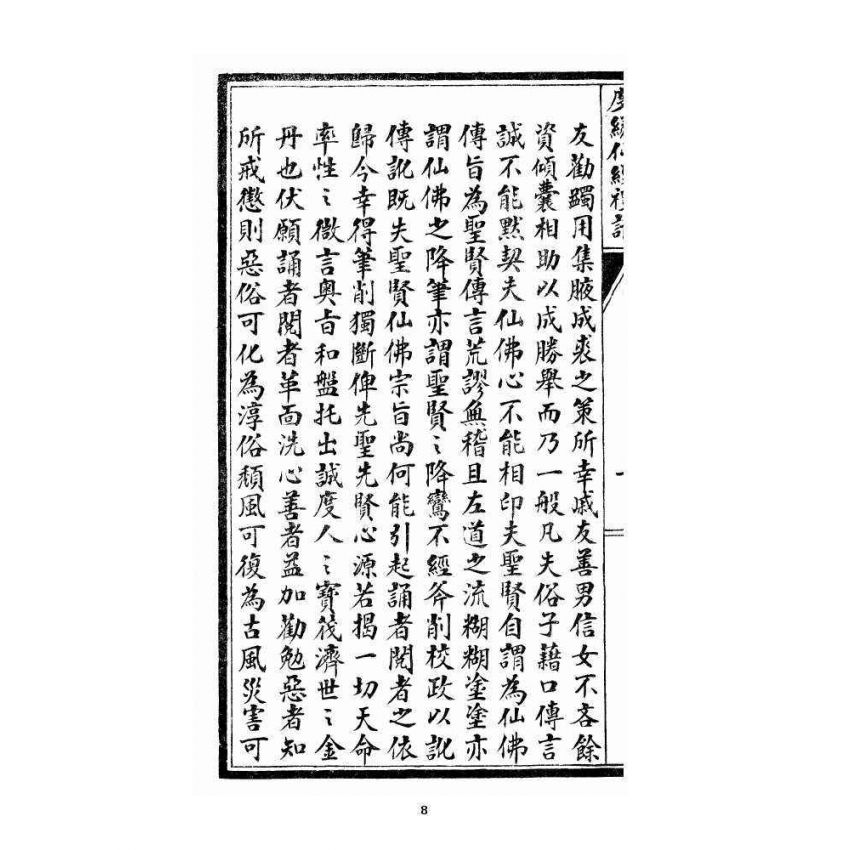 友勸蠲用集腋成裘之策所幸戚友善男信女不吝餘
資傾囊相助以成勝舉而乃一般凡夫俗子藉口傳言
誠不能默契夫仙佛心不能相印夫聖賢自謂為仙佛
傳旨為聖賢傳言荒謬無稽且左道之流糊糊塗塗亦
謂仙佛之降筆亦謂聖賢〻降鸞不經斧削校政以訛
傳訛既失聖賢仙佛宗旨尚何能引起誦者閱者之依
歸今幸得筆削獨斷俾先聖先賢心源若揭一切天命
率性〻微言奧旨和盤托出誠度人〻寶筏濟世〻金
丹也伏願誦者閱者革面洗心善者益加勸勉惡者知
所戒懲則惡俗可化為淳俗頹風可復為古風災害可
8